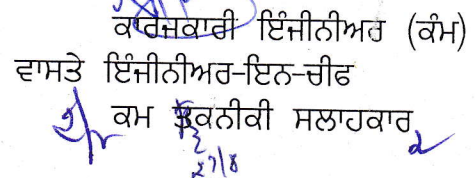 ਕਾਰਜਕਾਰੀ ਇੰਜੀਨੀਅਰ (ਕੰਮ)
ਵਾਸਤੇ ਇੰਜੀਨੀਅਰ-ਇਨ-ਚੀਫ
ਕਮ ਤਕਨੀਕੀ ਸਲਾਹਕਾਰ
27/8